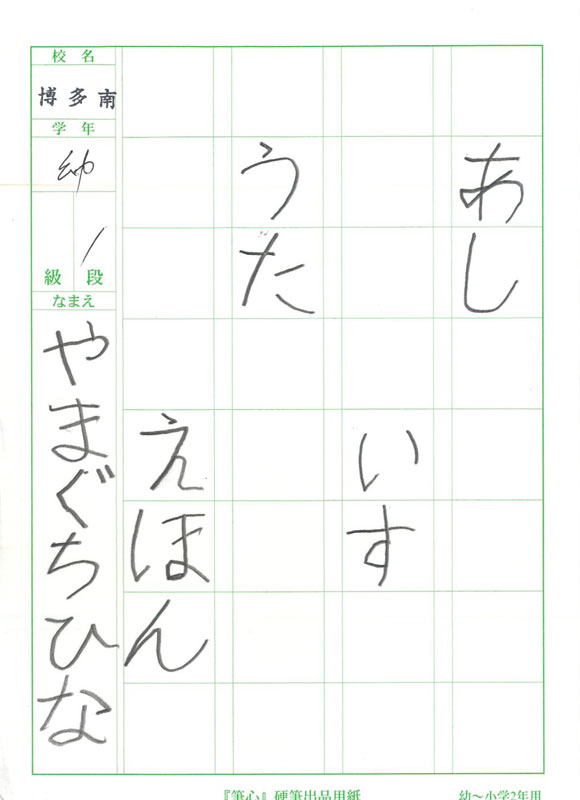 あし
いす
うた
えほん
校名
博多南
学年
幼
/
級 段
なまえ
やまぐちひな
『筆心』硬筆出品用紙
幼～小学2年用